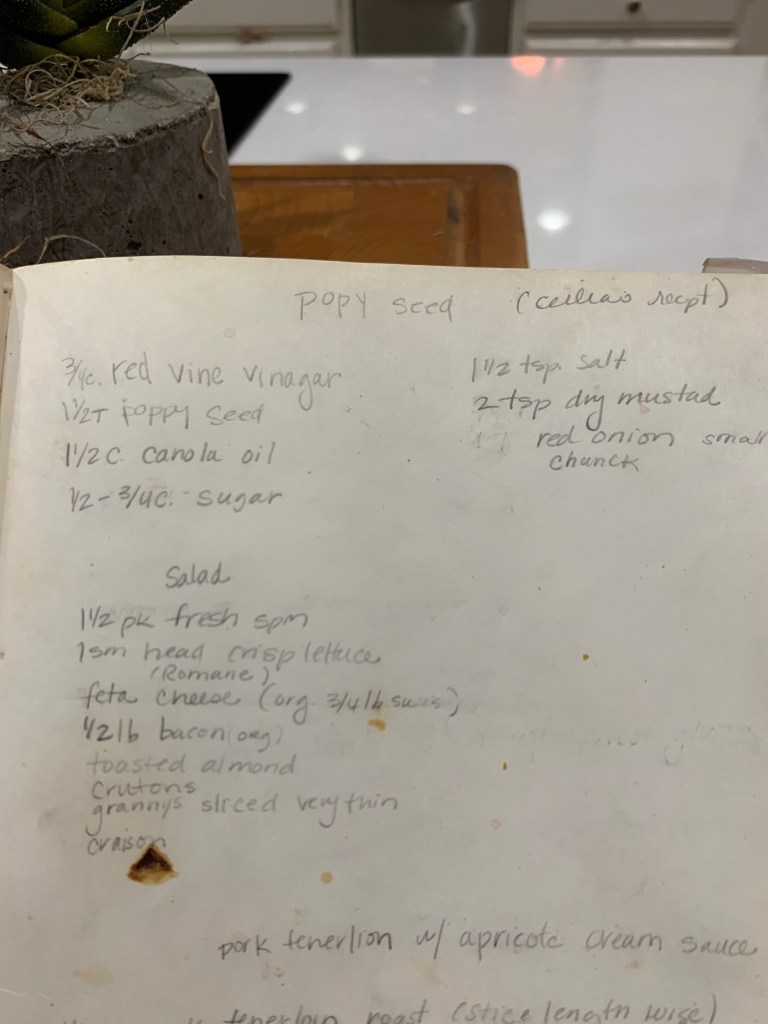 popy seed (ceilia's recpt)
3/4c. red vine vinagar
1 1/2 T poppy seed
1 1/2 C. canola oil
1/2 - 3/4c. sugar
1 1/2 tsp. salt
2 tsp dry mustad
red onion small
chunck
Salad
1 1/2 pk fresh spin
1 sm head crisp lettuce
(Romane)
feta cheese (org. 3/4 lb
1/2 lb bacon (org)
toasted almond
crutons
grannys sliced very thin
craison
pork tenerlion w/ apricote cream sauce
tenerloin roast (slice length wise)